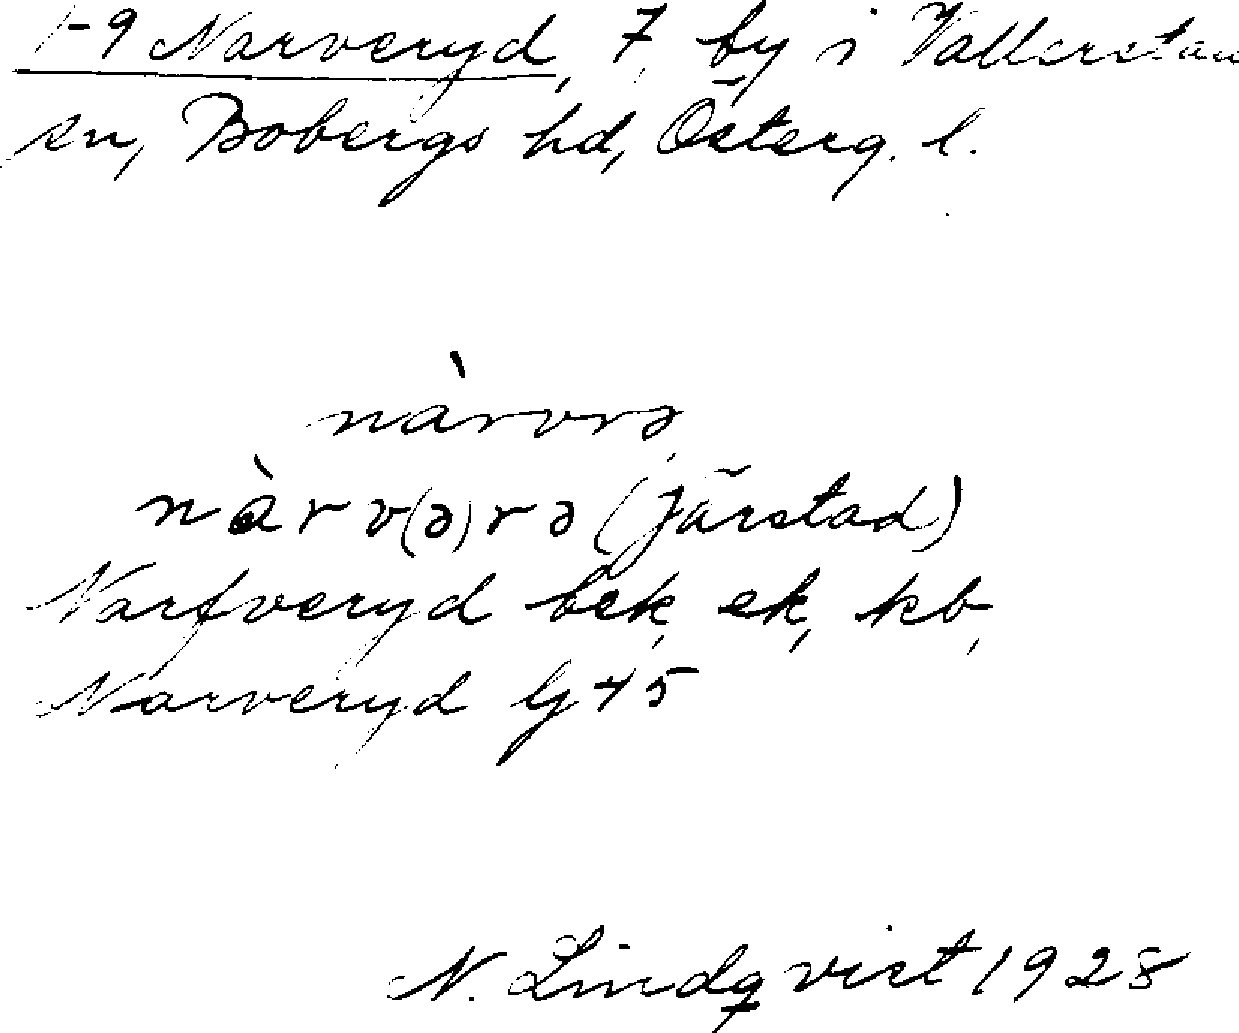 1-9 Narveryd, 7, by i Vallerstad
sn, Bobergs hd, Österg. l.
nàrvrə,
nàrv(ə)rə (Järstad)
Narfveryd bek, ek, kb,
Narveryd Gj 45
N. Lindqvist 1928